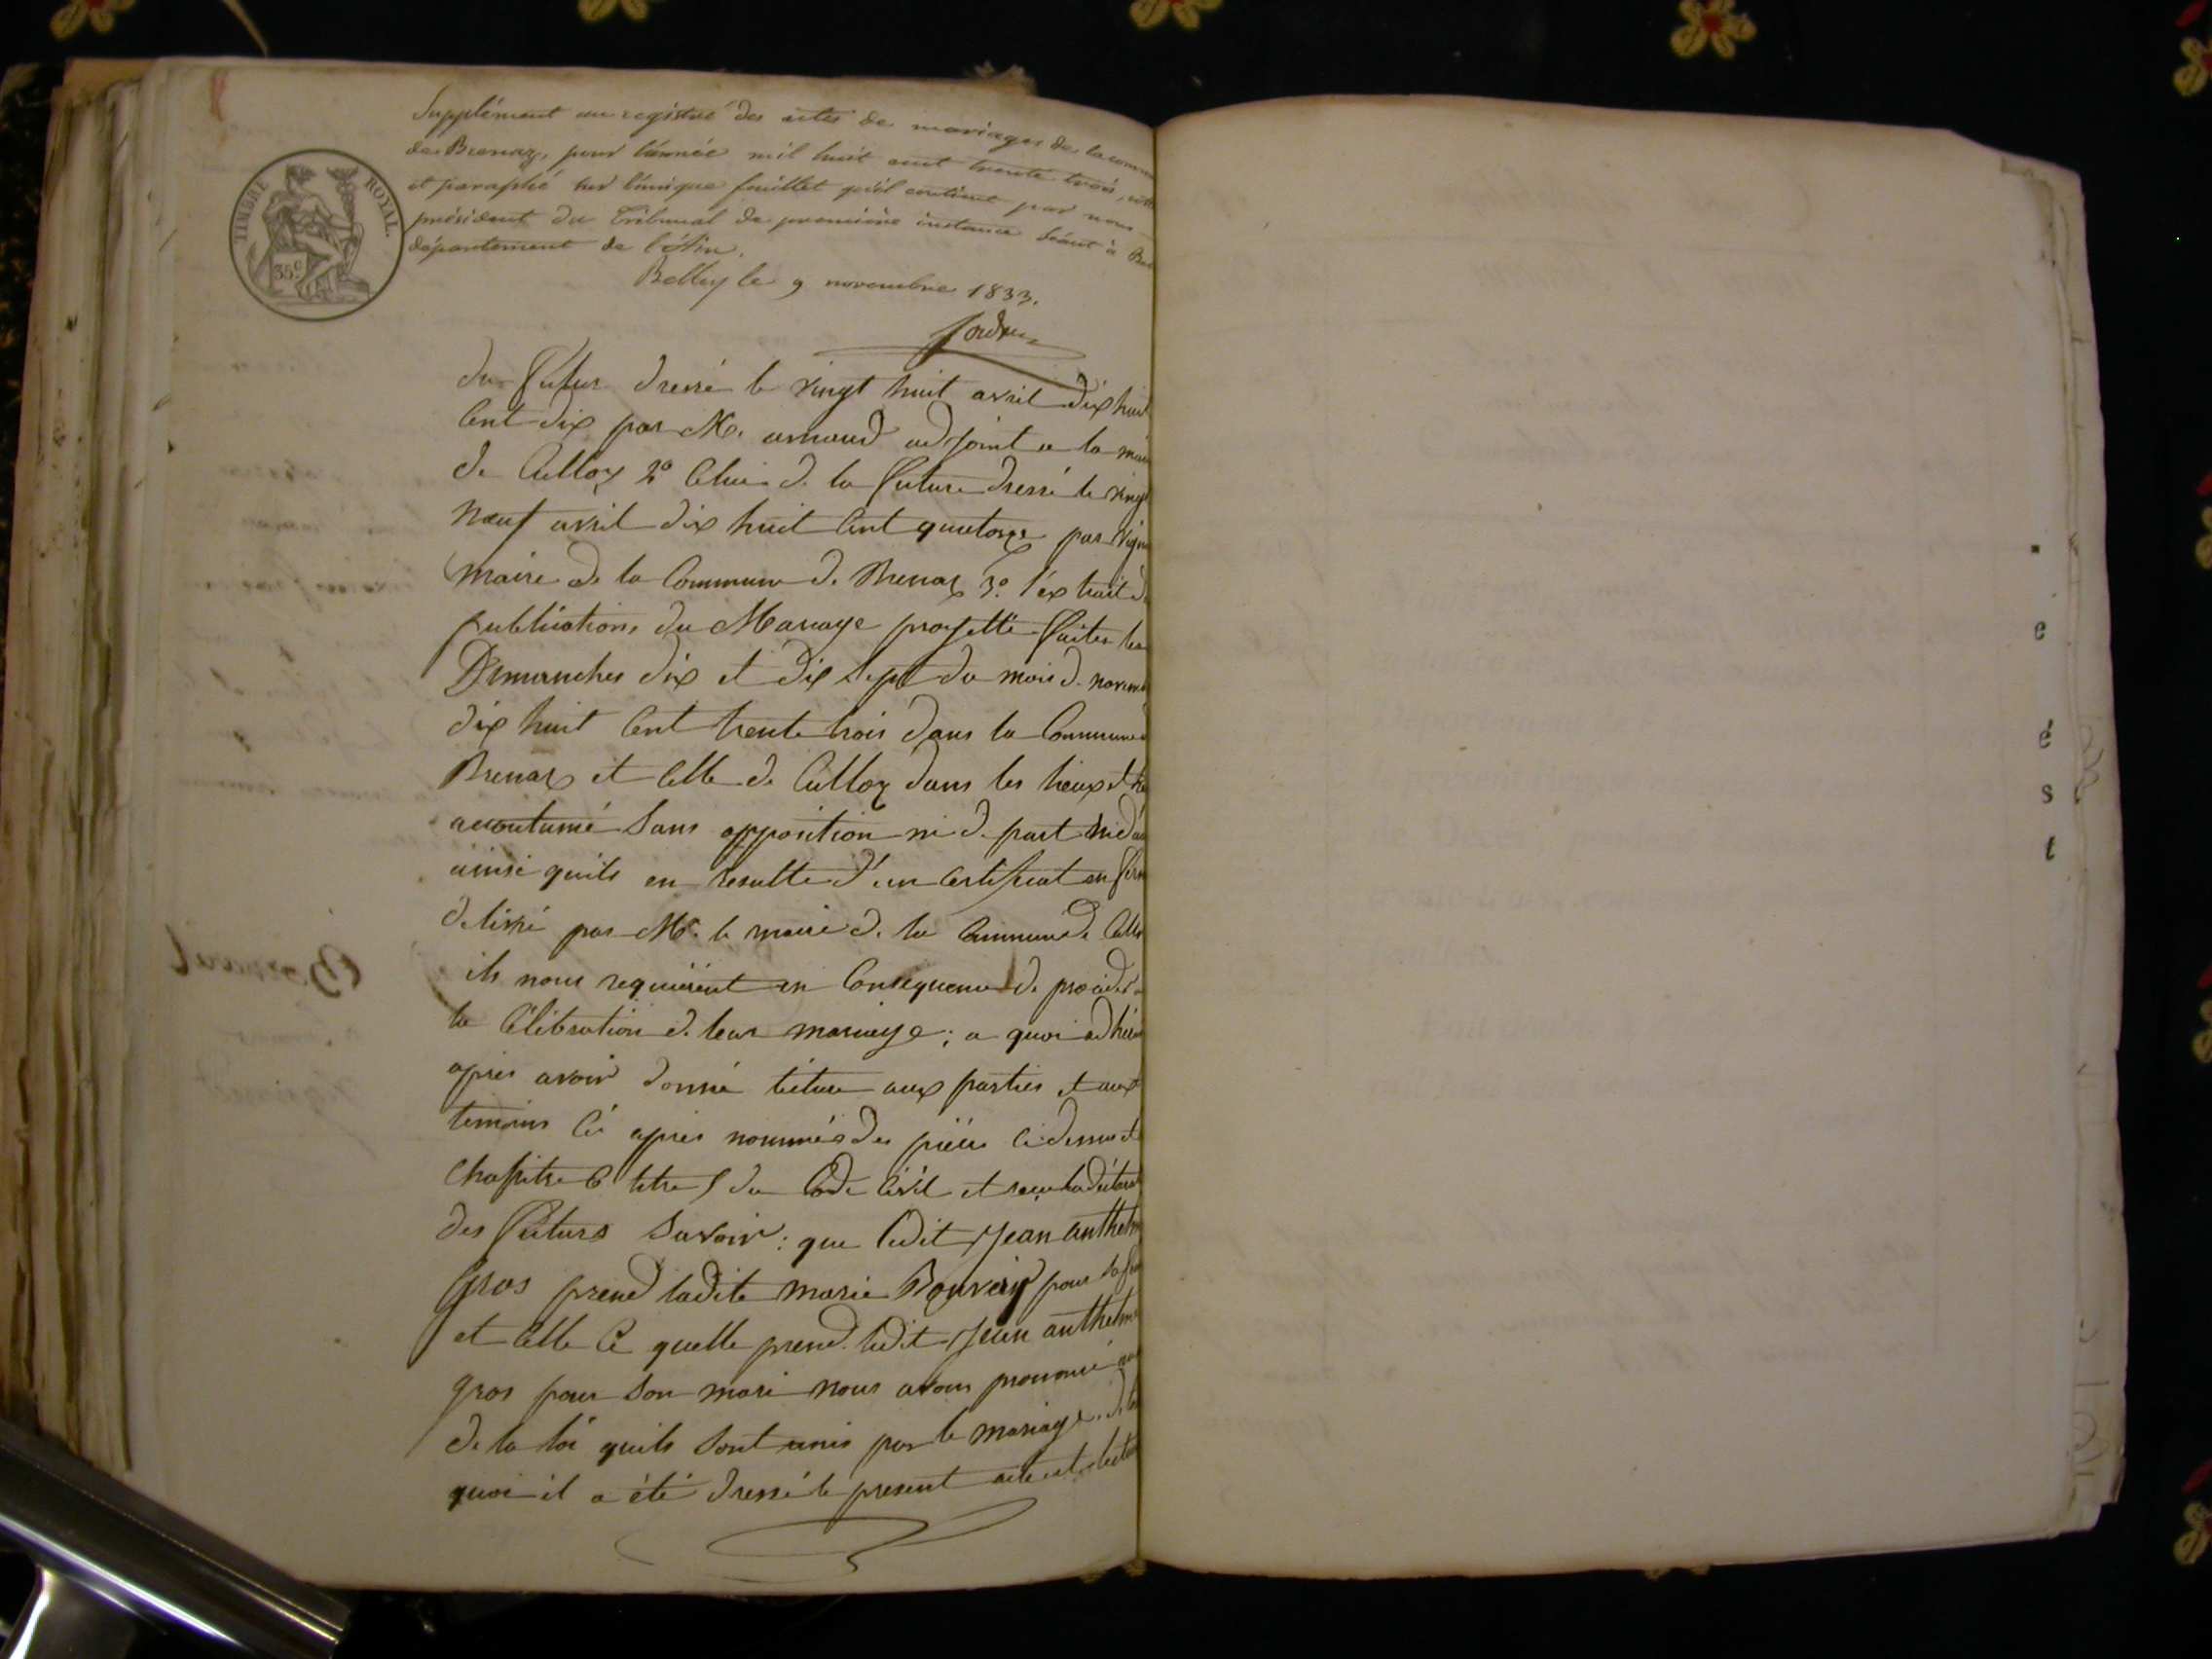 TIMBRE ROYAL.
35 c
Supplément au registre des actes de mariages de la comm
de Brenaz, pour l'année mil huit cent trente trois, coté
et paraphé sur l'unique feuillet qu'il contient par nous
président du Tribunal de première instance séant à Be
département de l'Ain.
Belley le 9 novembre 1833.
du futur dressé le vingt huit avril dix huit
Cent dix par M. arnaud adjoint a la mai
de Culloz 2° Celui de la future dressé le vingt
neuf avril dix huit Cent quatorze par
maire de la Commune de Brenaz 3° l'extrait d
publications du Mariage projetté faites les
Dimanches dix et dix sept du mois de novem
dix huit Cent trente trois dans la Commune
Brenaz et Celle de Culloz dans les lieux et
accoutumé Sans opposition ni de part ni d'au
ainsi quils en resulte d'un Certificat en form
delivré par Mr. le maire de la Commune de Cullo
ils nous requièrent en Consequence de proceder a
la Célébration de leur mariage ; a quoi adhér
après avoir donné lecture aux parties et aux
temoins Ci après nommés des pièces Ci dessus et
Chapitre 6 titre 5 du Code Civil et reçu la déclarat
des futurs Savoir : que ledit Jean anthelm
Gros prend ladite marie Bouvier pour sa fem
et Celle Ci quelle prend ledit Jean anthelme
gros pour Son mari nous avons prononcé au
de la loi quils Sont unis par le mariage. de
quoi il a été dressé le present acte et lectu
e
é
s
t